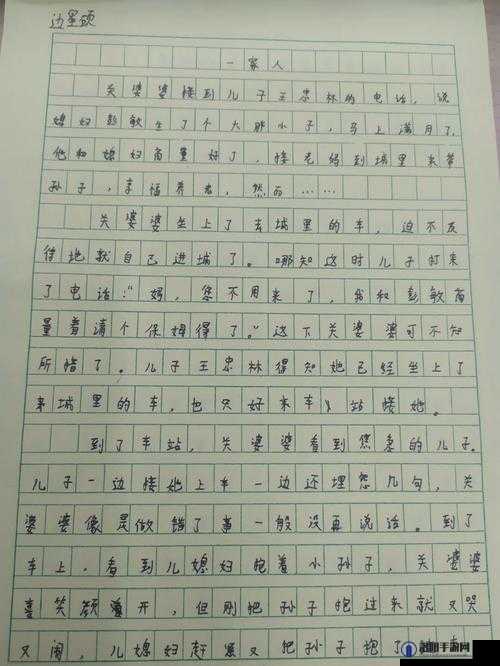 边星硕
一家人
关婆婆接到儿子王忠林的电话，说
媳妇彭敏生了个大胖小子，马上满月了，
他和媳妇商量好了，接老妈到城里来带
孙子，幸福养老，然而……
关婆婆坐上了去城里的车，迫不及
待地就自己进城了。哪知这时儿子打来
了电话：“妈，您不用来了，我和彭敏商
量着请个保姆得了。”这下关婆婆可不知
所措了。儿子王忠林得知她已经坐上了
来城里的车，也只好来车站接她。
到了车站，关婆婆看到焦急的儿子。
儿子一边接她上车一边还埋怨几句，关
婆婆像是做错了事一般没再说话。到了
车上，看到儿媳妇抱着小孙子，关婆婆
喜笑颜开，但刚把孙子抱过来就又哭
又闹，儿媳妇赶紧又把孙子抱了